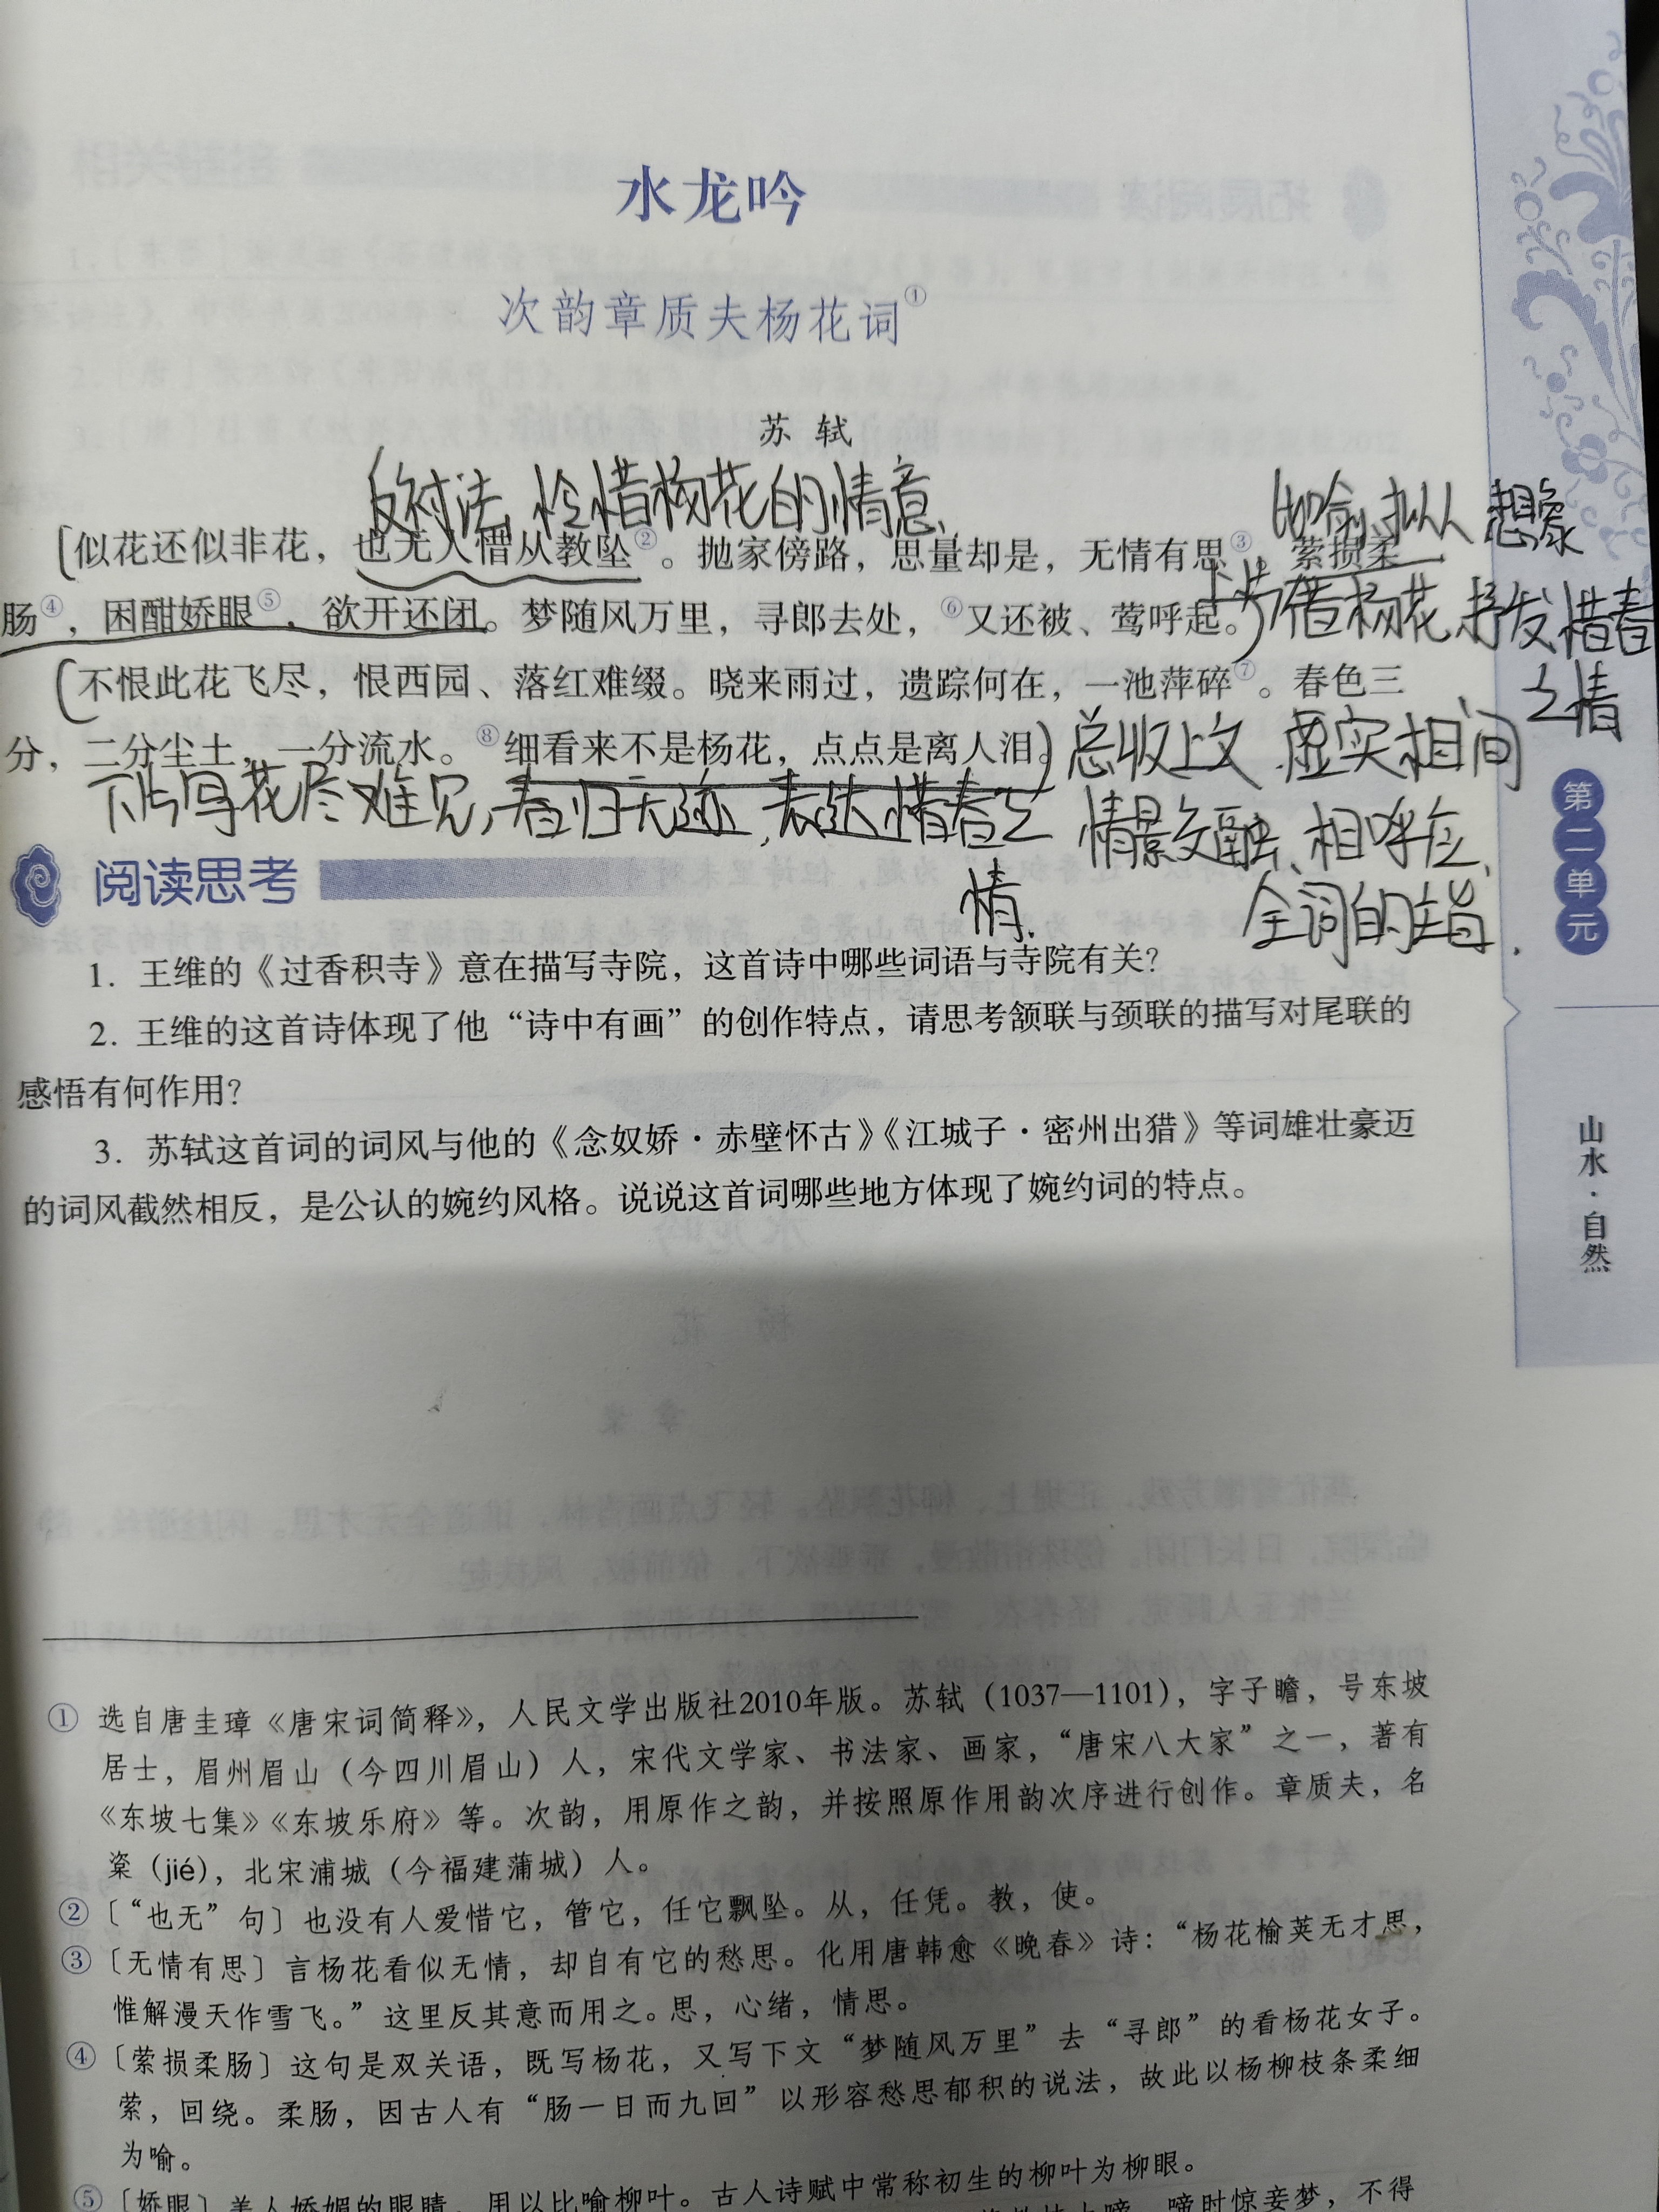 水龙吟
次韵章质夫杨花词①
苏 轼
反衬法, 怜惜杨花的情意,
比喻、拟人 想象
似花还似非花，也无人惜从教坠②。抛家傍路，思量却是，无情有思③。萦损柔
肠④，困酣娇眼⑤，欲开还闭。梦随风万里，寻郎去处，⑥又还被、莺呼起。
上片借杨花抒发惜春
之情
不恨此花飞尽，恨西园、落红难缀。晓来雨过，遗踪何在，一池萍碎⑦。春色三
分，二分尘土，一分流水。⑧细看来不是杨花，点点是离人泪。
总收上文 虚实相间
情景交融、相呼应、
全词的主旨.
下片写花尽难见,春归无迹,表达惜春之
情.
阅读思考
1. 王维的《过香积寺》意在描写寺院，这首诗中哪些词语与寺院有关？
2. 王维的这首诗体现了他“诗中有画”的创作特点，请思考颔联与颈联的描写对尾联的
感悟有何作用？
3. 苏轼这首词的词风与他的《念奴娇·赤壁怀古》《江城子·密州出猎》等词雄壮豪迈
的词风截然相反，是公认的婉约风格。说说这首词哪些地方体现了婉约词的特点。
第二单元
山水·自然
① 选自唐圭璋《唐宋词简释》，人民文学出版社2010年版。苏轼（1037—1101），字子瞻，号东坡
居士，眉州眉山（今四川眉山）人，宋代文学家、书法家、画家，“唐宋八大家”之一，著有
《东坡七集》《东坡乐府》等。次韵，用原作之韵，并按照原作用韵次序进行创作。章质夫，名
楶（jié），北宋浦城（今福建蒲城）人。
② 〔“也无”句〕也没有人爱惜它，管它，任它飘坠。从，任凭。教，使。
③ 〔无情有思〕言杨花看似无情，却自有它的愁思。化用唐韩愈《晚春》诗：“杨花榆荚无才思，
惟解漫天作雪飞。”这里反其意而用之。思，心绪，情思。
④ 〔萦损柔肠〕这句是双关语，既写杨花，又写下文“梦随风万里”去“寻郎”的看杨花女子。
萦，回绕。柔肠，因古人有“肠一日而九回”以形容愁思郁积的说法，故此以杨柳枝条柔细
为喻。
⑤ 〔娇眼〕美人娇媚的眼睛，用以比喻柳叶。古人诗赋中常称初生的柳叶为柳眼。
啼时惊妾梦，不得